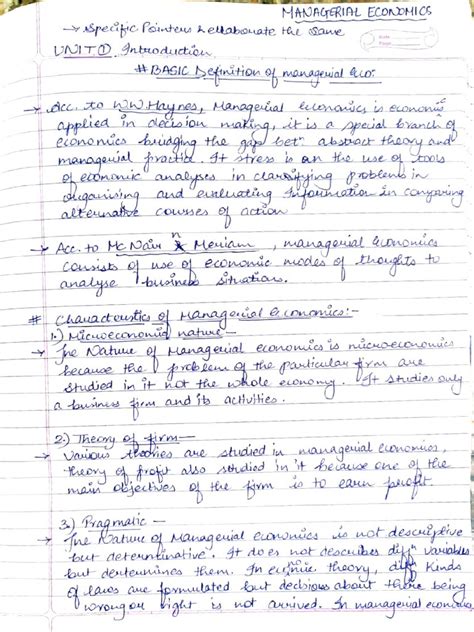 MANAGERIAL ECONOMICS
→ Specific Pointers & ellaborate the same
UNIT ① Introduction
# BASIC Definition of managerial Eco:
→ Acc. to WW Haynes, Managerial economics is economic
applied in decision making, it is a special branch of
economics bridging the gap betn abstract theory and
managerial practice. It stress is on the use of tools
of economic analyses in clarifying problems in
organising and evaluating information in comparing
alternative courses of action
→ Acc. to Mc Nair n Meriam, managerial economics
consists of use of economic modes of thoughts to
analyse business situation.
# Characteristics of Managerial Economics:-
1.) Microeconomic nature -
→ The Nature of Managerial economics is microeconomics
because the problem of the particular firm are
studied in it not the whole economy. It studies only
a business firm and its activities.
2.) Theory of firm -
→ Various theories are studied in managerial economics,
theory of profit also studied in it because one of the
main objectives of the firm is to earn profit.
3.) Pragmatic -
→ The Nature of Managerial economics is not descriptive
but determinative. It does not describes diffn variables
but determines them. In economic theory, diffn Kinds
of laws are formulated but decisions about there being
wrong or right is not arrived. In managerial economics